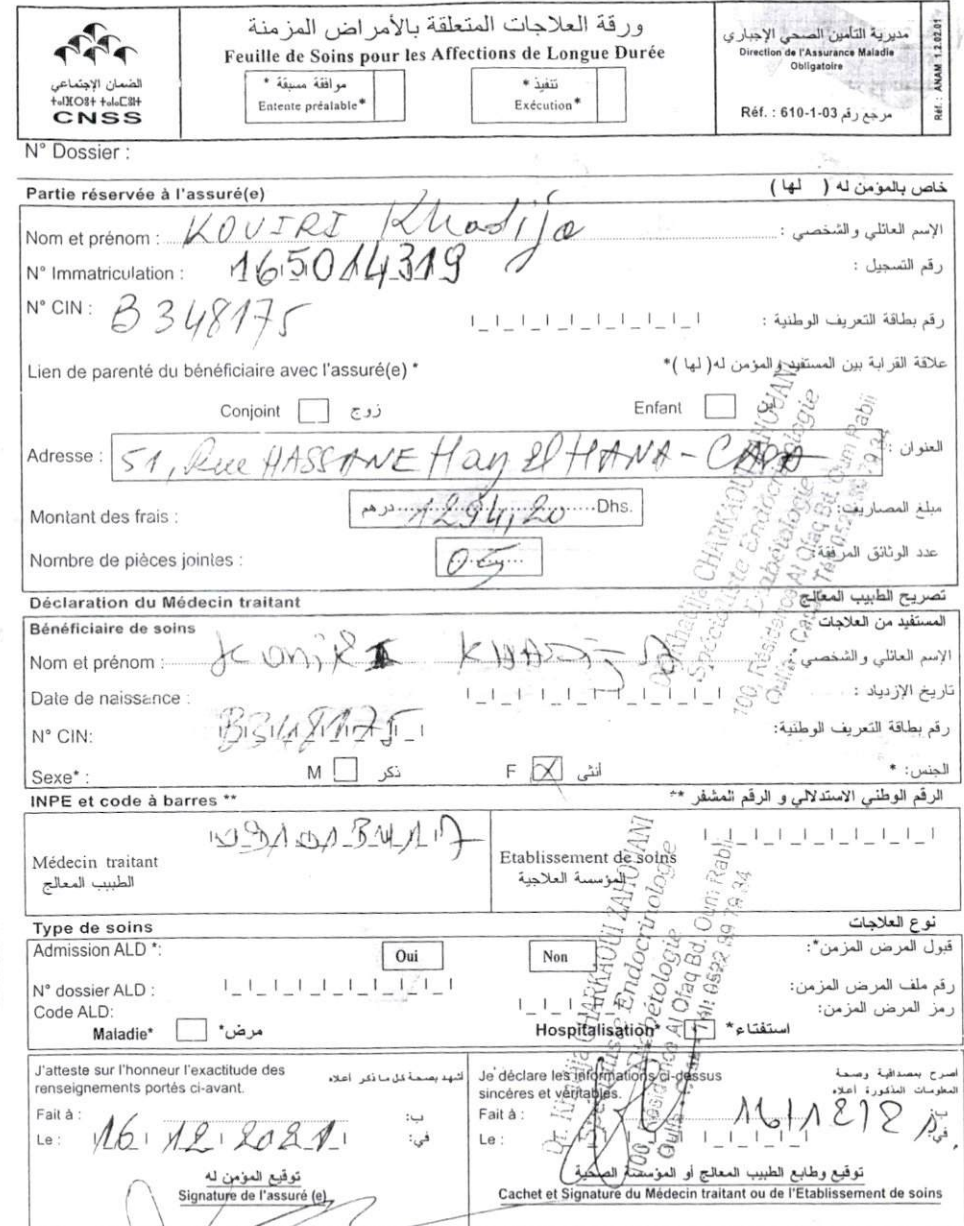 الضمان الإجتماعي
CNSS
ورقة العلاجات المتعلقة بالأمراض المزمنة
Feuille de Soins pour les Affections de Longue Durée
موافقة مسبقة *
Entente préalable*
تنفيذ *
Exécution*
مديرية التأمين الصحي الإجباري
Direction de l'Assurance Maladie
Obligatoire
Réf. : 610-1-03 مرجع رقم
Réf. : ANAM 1.2.02.01
N° Dossier :
Partie réservée à l'assuré(e) خاص بالمؤمن له ( لها )
Nom et prénom : KOUIRI Khadija الإسم العائلي والشخصي :
N° Immatriculation : 165014319 رقم التسجيل :
N° CIN : B348175 رقم بطاقة التعريف الوطنية :
Lien de parenté du bénéficiaire avec l'assuré(e) * علاقة القرابة بين المستفيد والمؤمن له( لها )*
Conjoint زوج Enfant ابن
Adresse : 51, Rue HASSANE Hay El HANA - CASA العنوان :
Montant des frais : درهم 1294,20 Dhs. مبلغ المصاريف:
Nombre de pièces jointes : 05 عدد الوثائق المرفقة:
Déclaration du Médecin traitant تصريح الطبيب المعالج
Bénéficiaire de soins المستفيد من العلاجات
Nom et prénom : KOUIRI KHADIJA الإسم العائلي والشخصي
Date de naissance : تاريخ الإزدياد :
N° CIN: B348175 رقم بطاقة التعريف الوطنية:
Sexe* : M ذكر F أنثى الجنس: *
INPE et code à barres ** الرقم الوطني الاستدلالي و الرقم المشفر **
Médecin traitant
الطبيب المعالج
Etablissement de soins
المؤسسة العلاجية
Type de soins نوع العلاجات
Admission ALD *: Oui Non قبول المرض المزمن*:
N° dossier ALD : رقم ملف المرض المزمن:
Code ALD: رمز المرض المزمن:
Maladie* مرض* Hospitalisation* استشفاء*
J'atteste sur l'honneur l'exactitude des
renseignements portés ci-avant.
أشهد بصحة كل ما ذكر أعلاه
Fait à : ب:
Le : 16 12 2021 في:
توقيع المؤمن له
Signature de l'assuré (e)
Je déclare les informations ci-dessus
sincères et véritables.
أصرح بمصداقية وصحة
المعلومات المذكورة أعلاه
Fait à : ب:
Le : في:
توقيع وطابع الطبيب المعالج أو المؤسسة الصحية
Cachet et Signature du Médecin traitant ou de l'Etablissement de soins
Dr. Khadija CHARKAOUI ZAHOUANI
Spécialiste Endocrinologie
Diabétologie
100, Résidence Al Ofaq Bd. Oum Rabii
Oulfa - Casa - Tél: 0522 89 79 34